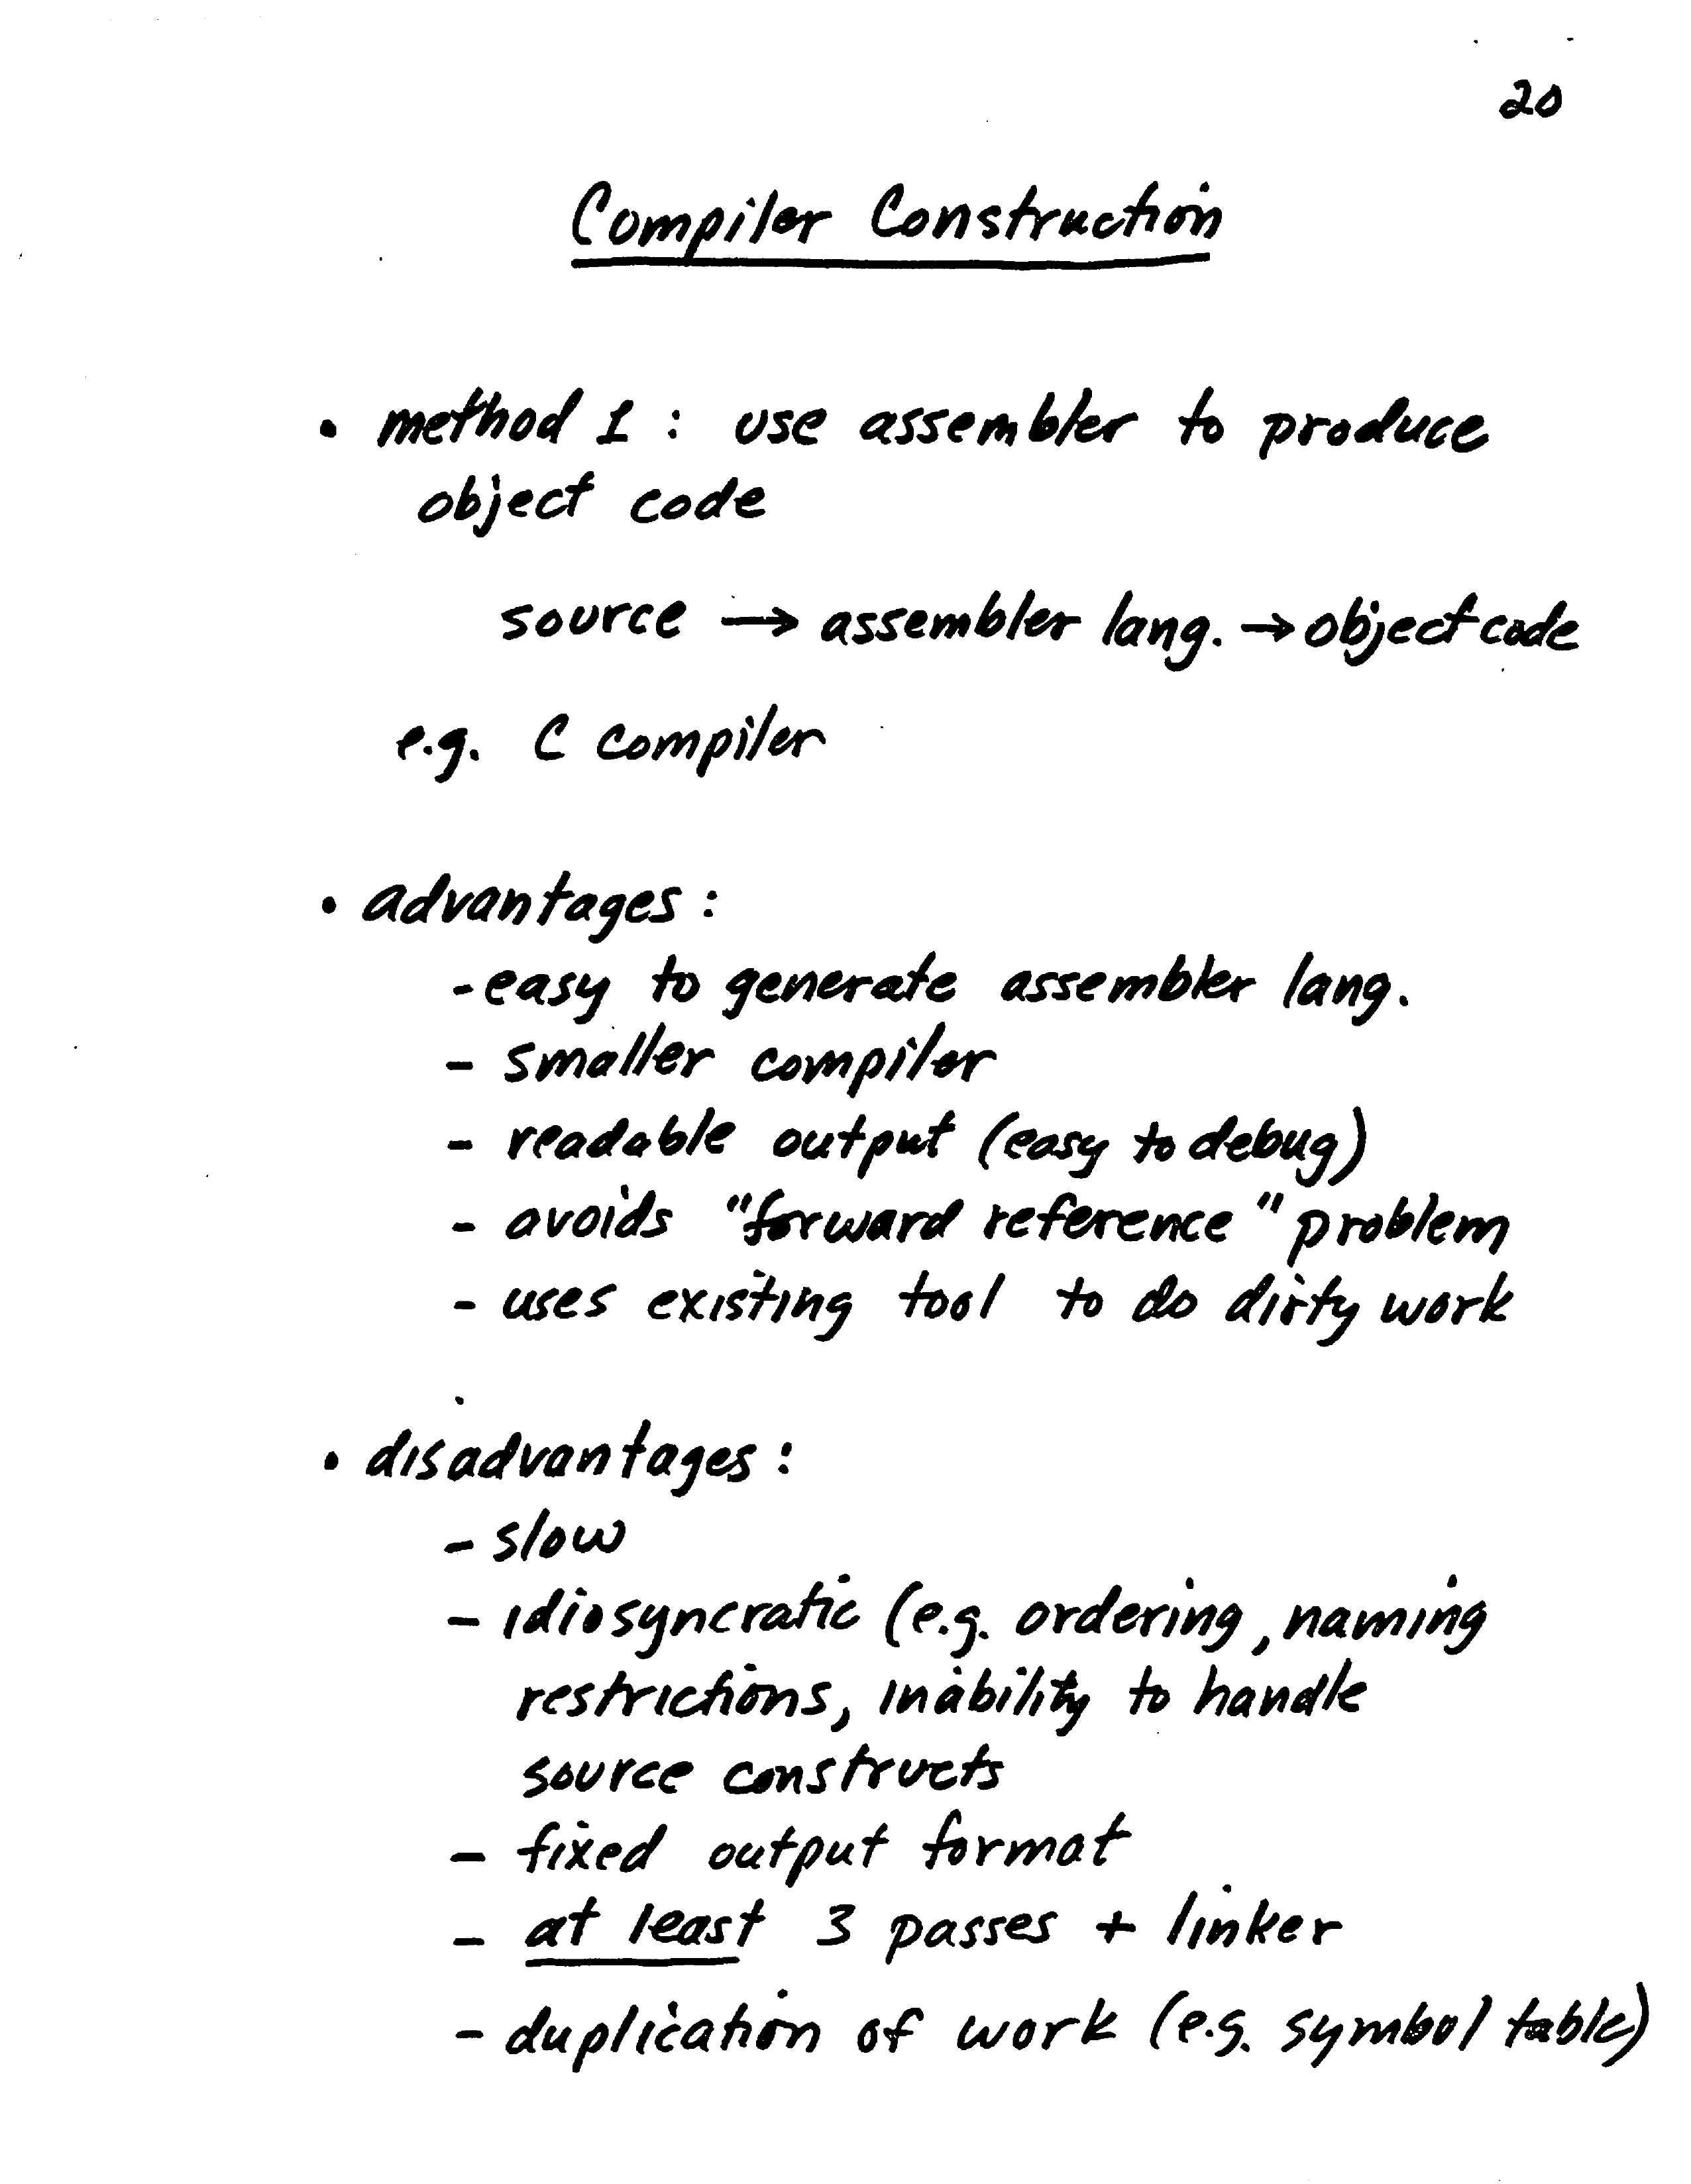 20
Compiler Construction
• method 1 : use assembler to produce
object code
source → assembler lang. → object code
e.g. C compiler
• advantages :
- easy to generate assembler lang.
- smaller compiler
- readable output (easy to debug)
- avoids "forward reference" problem
- uses existing tool to do dirty work
• disadvantages :
- slow
- idiosyncratic (e.g. ordering, naming
restrictions, inability to handle
source constructs
- fixed output format
- at least 3 passes + linker
- duplication of work (e.g. symbol table)